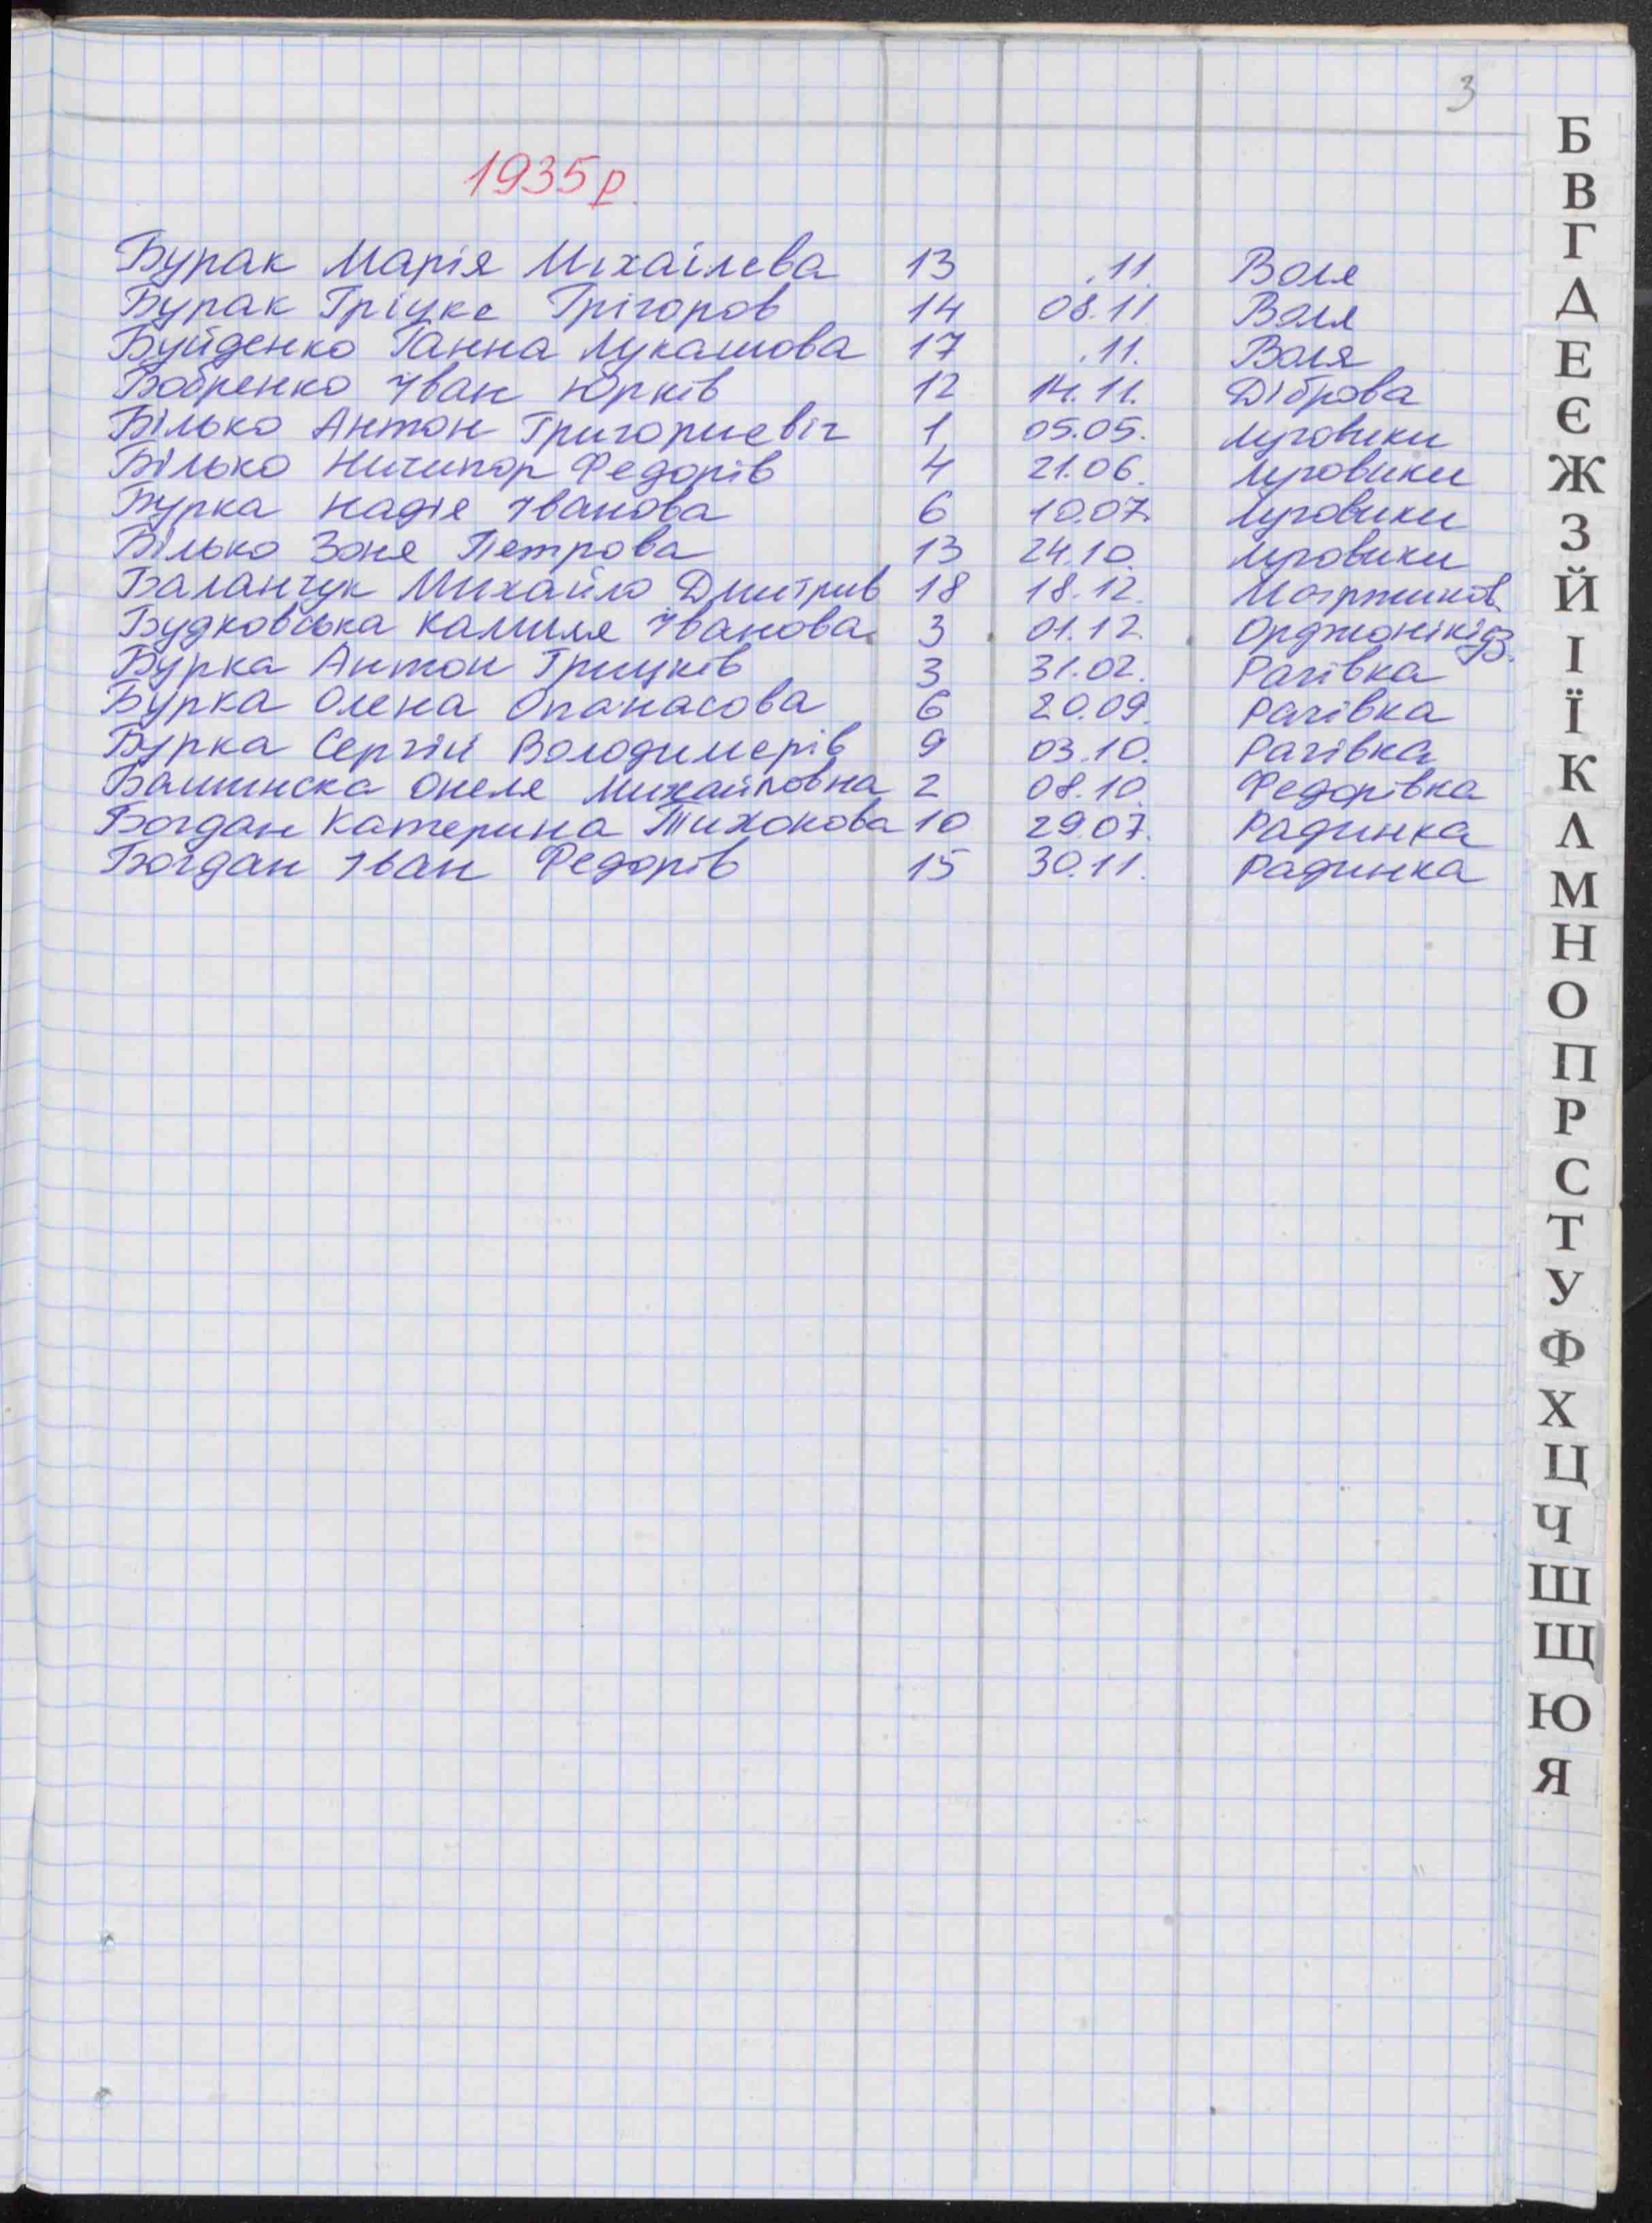 3
1935 р.
Бурак Марія Міхаілева 13 .11. Воля
Бурак Гріцке Грігоров 14 08.11 Воля
Буйденко Ганна Лукашова 17 .11. Воля
Бобренко Іван Юрків 12 14.11. Діброва
Білько Антон Григориєвіч 1 05.05. Луговики
Білько Ничипор Федорів 4 21.06. Луговики
Бурка Надіе Іванова 6 10.07. Луговики
Білько Зоне Петрова 13 24.10. Луговики
Баланчук Михайло Дмитрив 18 18.12.
Будковська Камиля Іванова 3 01.12. Орджонікідз.
Бурка Антон Грицків 3 31.02. Рагівка
Бурка Олена Опанасова 6 20.09. Рагівка
Бурка Сергій Володимерів 9 03.10. Рагівка
Онеля Михайловна 2 08.10. Федорівка
Богдан Катерина Тихонова 10 29.07. Радинка
Богдан Іван Федорів 15 30.11. Радинка
Б
В
Г
Д
Е
Є
Ж
З
Й
І
Ї
К
Л
М
Н
О
П
Р
С
Т
У
Ф
Х
Ц
Ч
Ш
Щ
Ю
Я